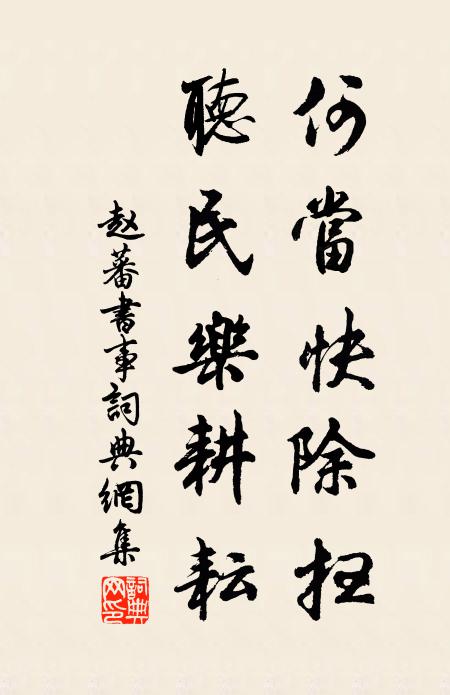 何當快除扫
聽民樂耕耘
赵蕃書事詞典網集
詞典
网印